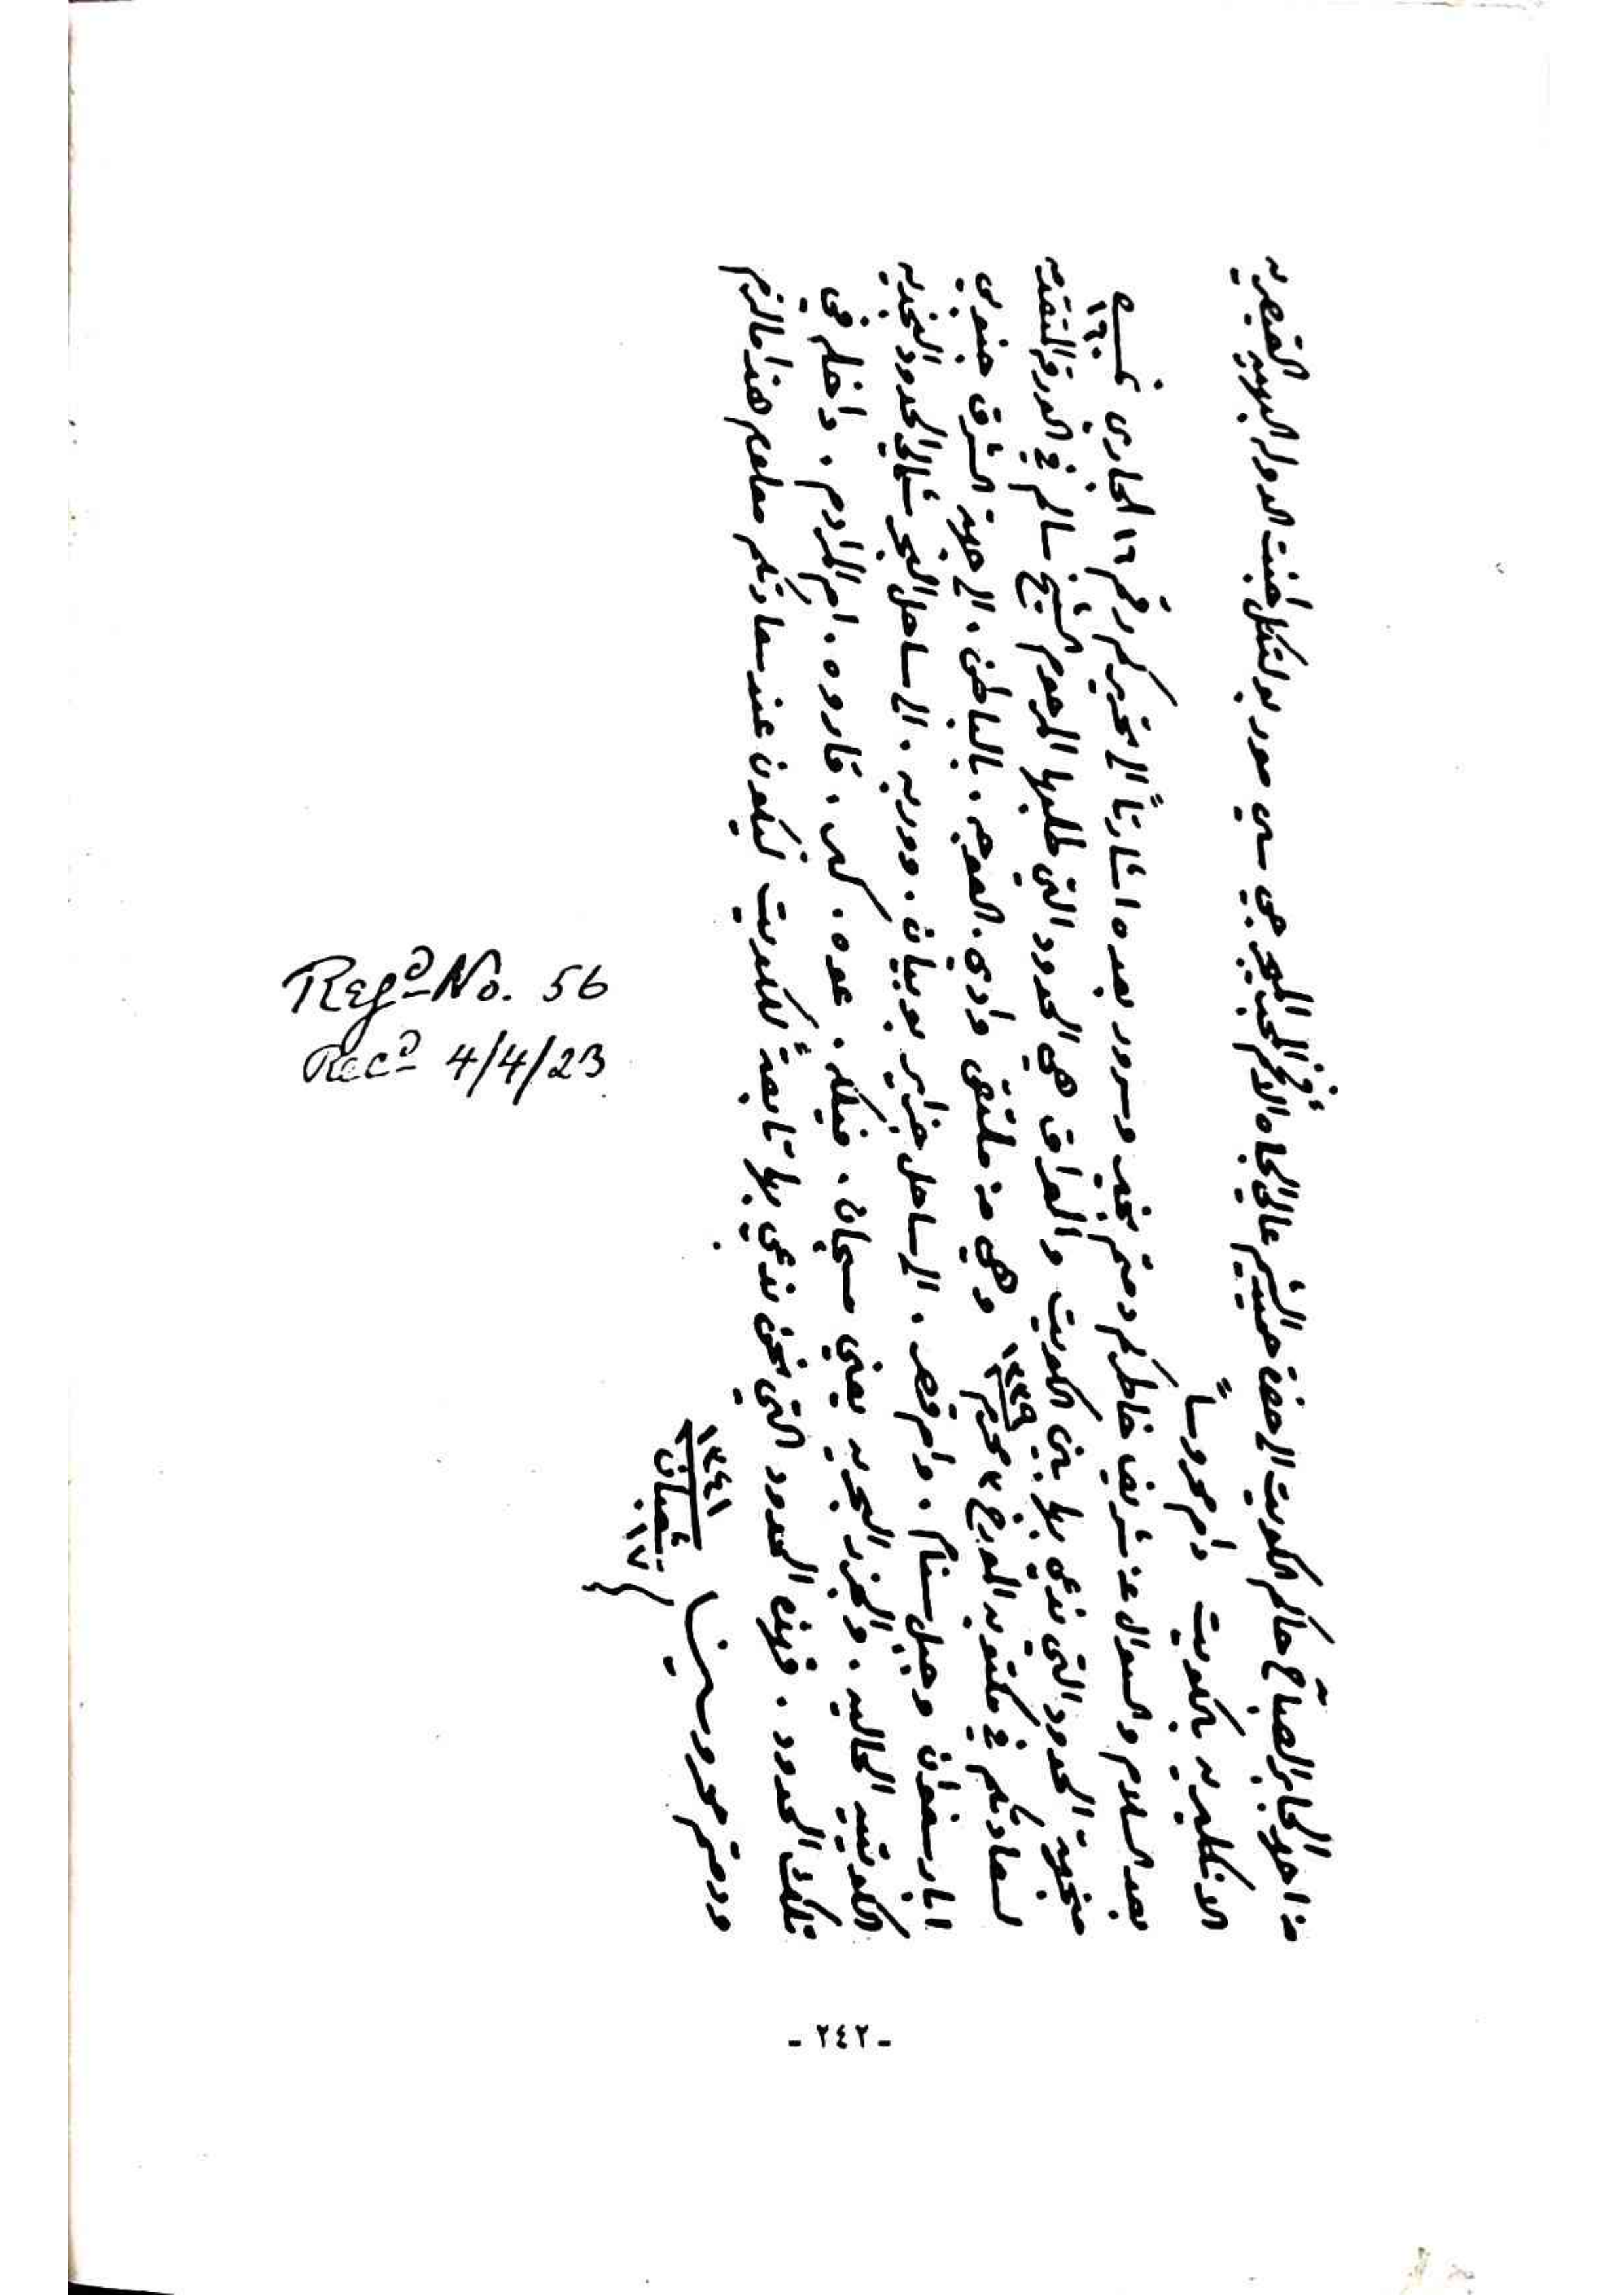 من احمد الجابر الصباح حاكم الكويت الى حضرة حميد الشيم عالي الجاه الافخم المحب ميجر جي سي مور بولتكل اجنت الدولة البهية القيصرية
الانكليزية بكويت دام محروساً
بعد السلام والسوال عن شريف خاطركم دمتم بخير وسرور بعده اشارتاً الى تحريركم رقم ١٦ الجاري نمره ١٦٠
بجهة الحدود التي ندعي بها بين الكويت والعراق هي الحدود التي طلبها المرحوم الشيخ سالم في
لسعادتكم في مكتوبه المورخ محرم ١٣٣٩ وهي من ملتقى وادي العوجه بالباطن الى جهة الشرق جنوبي
ابار سفوان وجبل سنام وام قصر الى ساحل جزاير بوبيان ووربه الى ساحل البحر شمالي الحدود النجديه
الكويتيه الحاليه والجزر البحريه يعني مسجان فيلكه عوهه كبر قاروه ام المرادم داخله في
تلك الحدود فهذه الحدود التي نحن ندعي بها تابعة للكويت ليكون عند سعادتكم معلوم هذا ما لزم
ودمتم محروسين
١٧ شعبان ١٣٤١
Regd No. 56
Recd 4/4/23
- ٢٤٢ -